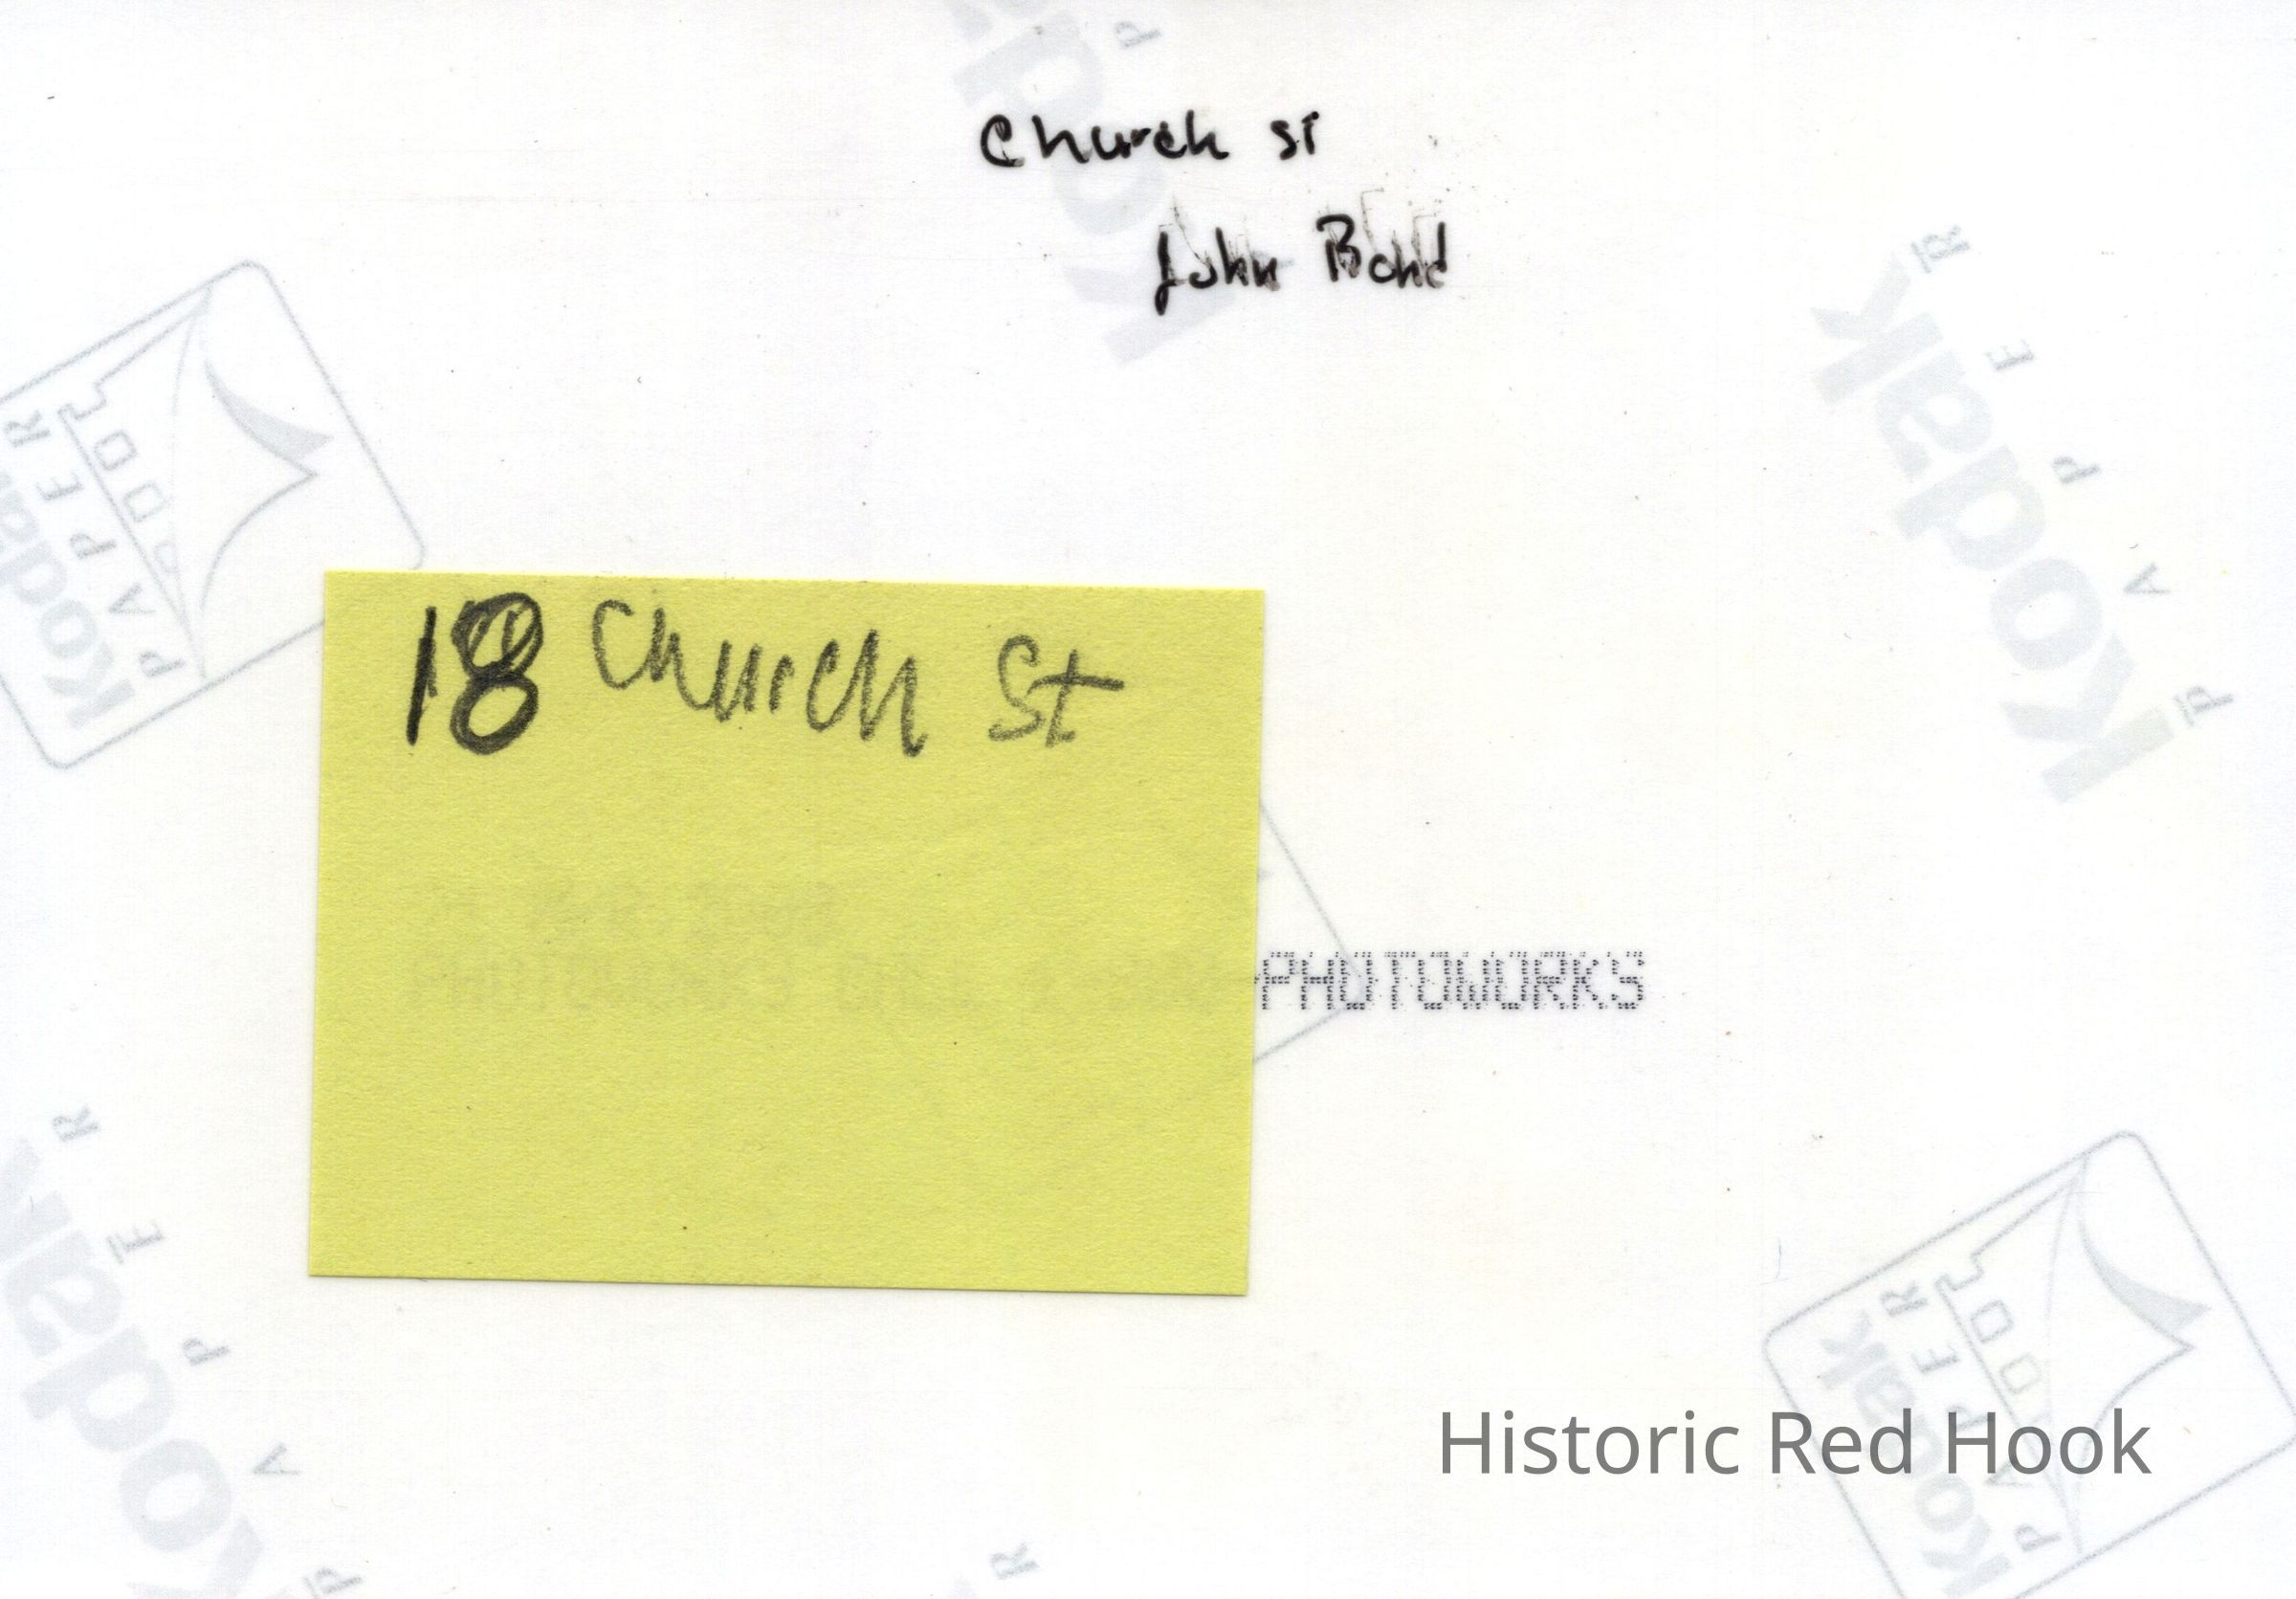 Church St
John Bond
18 Church St
PHOTOWORKS
Historic Red Hook
Kodak
PAPER
Kodak
PAPER
Kodak
PAPER
Kodak
PAPER